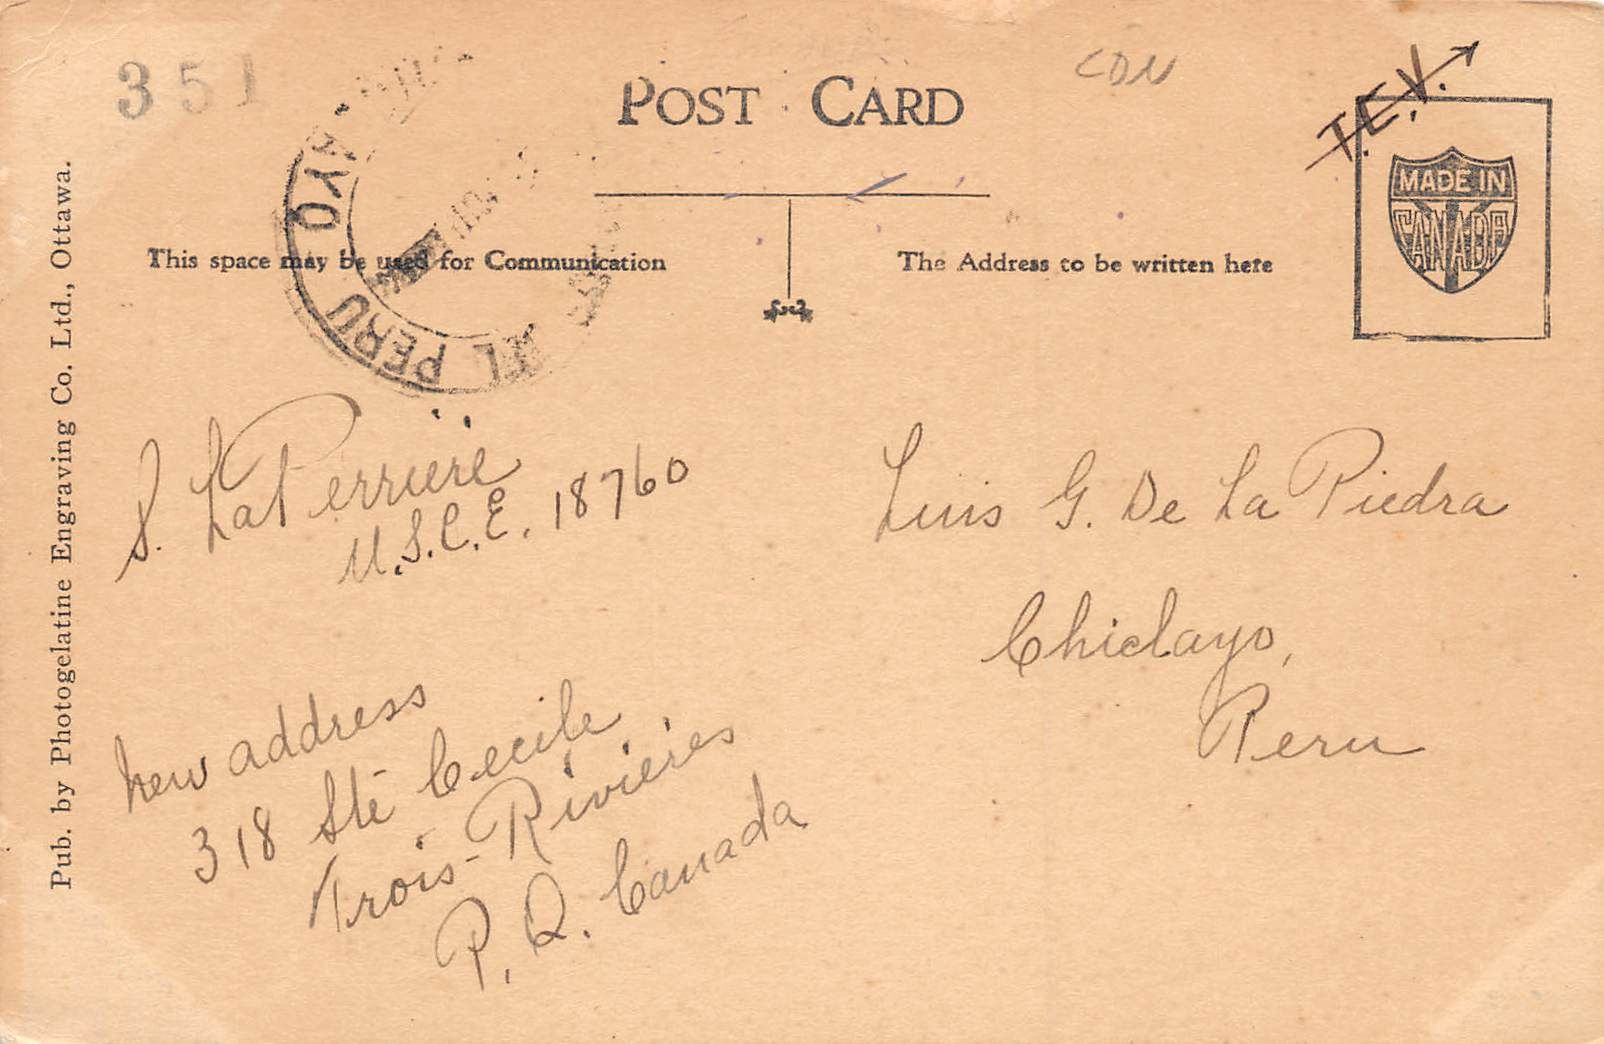 351
CDN
POST CARD
T.E.V.
MADE IN
CANADA
This space may be used for Communication
The Address to be written here
PERU
Pub. by Photogelatine Engraving Co. Ltd., Ottawa.
S. LaPerrière
U.S.C.E. 18760
New address
318 Ste Cecile
Trois-Rivières
P. Q. Canada
Luis G. De La Piedra
Chiclayo,
Peru